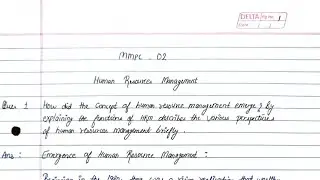 DELTA
MMPC - 02
Human Resources Management
Ques 1 How did the concept of human resource management emerge? by
explaining the functions of HRM describe the various perspectives
of human resources management briefly.
Ans : Emergence of Human Resource Management :
in the 1980s there was a